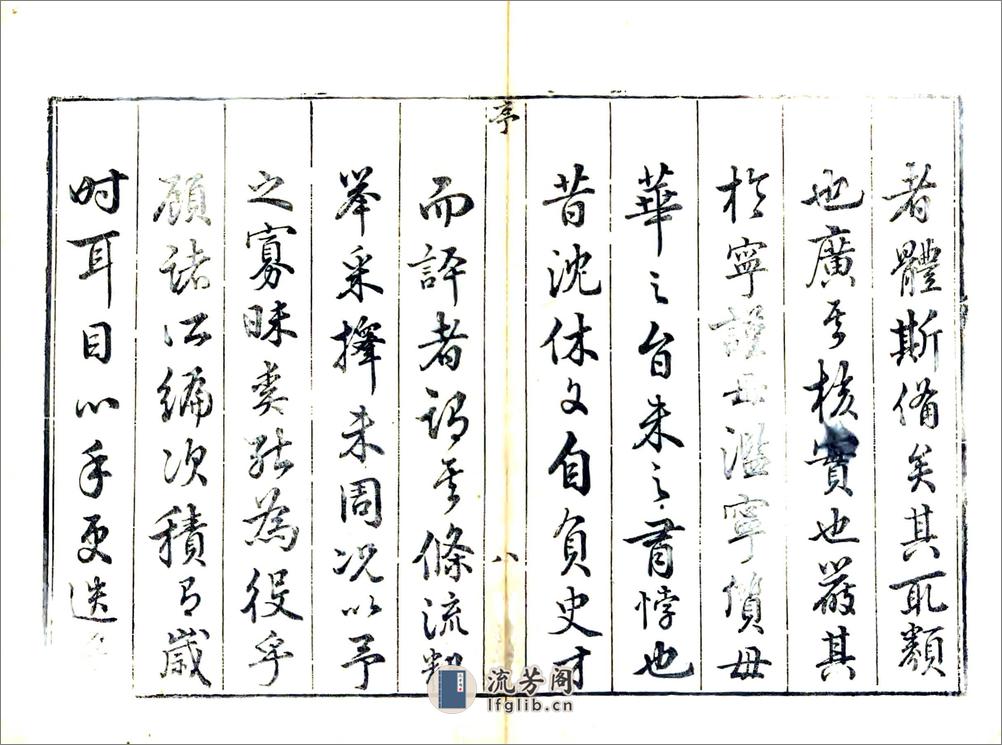 者體斯備矣其取類
也廣其核實也嚴其
於寧謹毋濫寧質毋
華之旨未之悖也
昔沈休文自負史才
序
八
而評者謂其條流
舉采擇未周况以予
之寡昧奚能為役乎
顧諸公編次積有歲
时耳目心手更迭
流芳阁
lfglib.cn